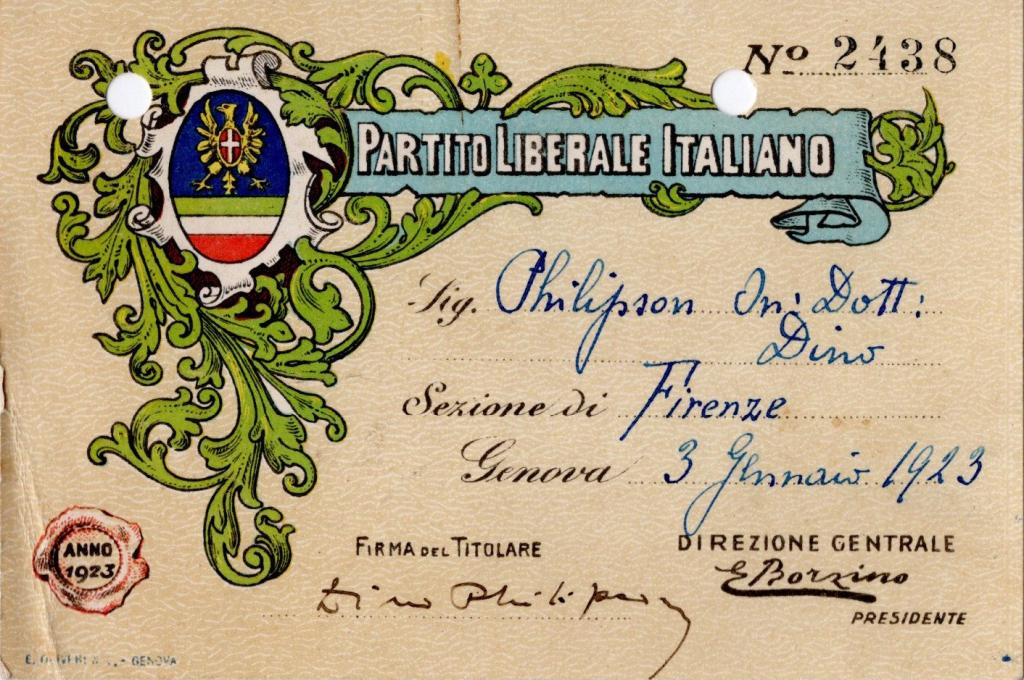 Nº 2438
PARTITO LIBERALE ITALIANO
Sig. Philipson On: Dott:
Dino
Sezione di Firenze
Genova 3 Gennaio 1923
ANNO
1923
FIRMA DEL TITOLARE
Dino Philipson
DIREZIONE CENTRALE
E Borzino
PRESIDENTE
GENOVA